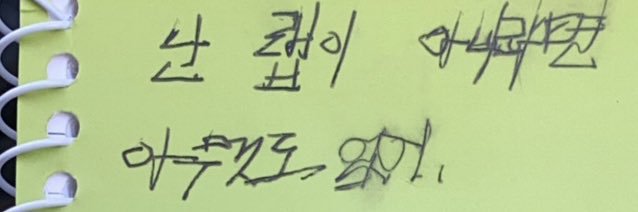 난 랩이 아니라면
아무것도 없어.